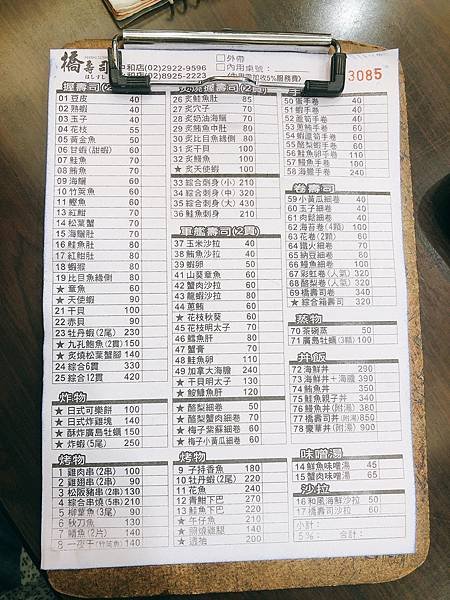 橋壽司
中和店(02)2922-9596
和店(02)8925-2223
外帶
內用桌號:
(內用需加收5%服務費)
3085
握壽司(2
01 豆皮 40
02 熟蝦 40
03 玉子 40
04 花枝 55
05 黃金魚 50
06 甘蝦(甜蝦) 60
07 鮭魚 70
08 鮪魚 70
09 海鱺 60
10 竹筴魚 60
11 鰹魚 60
13 紅魽 70
14 松葉蟹 70
15 海鱺肚 70
16 鮭魚肚 80
17 紅魽肚 80
18 蝦猴 80
19 比目魚緣側 80
★ 章魚 60
★ 天使蝦 90
21 干貝 100
22 赤貝 90
23 牡丹蝦(2尾) 230
★ 九孔鮑魚(2貫) 150
★ 炙燒松葉蟹腳 140
24 綜合6貫 330
25 綜合12貫 420
炸物
★ 日式可樂餅 100
★ 日式炸雞塊 140
★ 酥炸廣島牡蠣 150
★ 炸蝦(5尾) 250
烤物
1 雞肉串(2串) 100
2 雞翅串(2串) 90
3 松阪豬串(2串) 130
4 綜合串燒(5串) 210
5 柳葉魚(3尾) 90
6 秋刀魚 70
7 鯖魚(2片) 140
8 一夜干(竹筴魚) 140
炙燒握壽司(2貫)
26 炙鮭魚肚 85
27 炙穴子 70
28 炙奶油海鱺 70
29 炙鮪魚中肚 80
30 炙比目魚緣側 80
31 炙干貝 100
32 炙鰻魚 100
★ 炙天使蝦 90
33 綜合刺身(小) 210
34 綜合刺身(中) 320
35 綜合刺身(大) 430
36 鮭魚刺身 210
軍艦壽司(2貫)
37 玉米沙拉 40
38 鮪魚沙拉 40
39 蝦卵 50
40 山葵章魚 60
42 蟹肉沙拉 60
43 龍蝦沙拉 80
44 蔥鮪 60
★ 花枝秋葵 60
45 花枝明太子 70
46 鱈魚肝 80
47 蟹膏 70
48 鮭魚卵 110
49 加拿大海膽 240
★ 干貝明太子 130
★ 鮟鱇魚肝 120
★ 酪梨細卷 50
★ 酪梨蟹肉細卷 70
★ 梅子紫蘇細卷 60
★ 梅子小黃瓜細卷 60
烤物
9 子持香魚 180
10 牡丹蝦(2尾) 220
11 花魚 240
12 青魽下巴 220
13 鮭魚下巴 200
★ 午仔魚 210
★ 照燒雞腿 140
透抽 200
手
50 蛋手卷 40
51 蝦手卷 40
52 蘆筍手卷 40
53 蔥鮪手卷 60
54 蝦蘆筍手卷 60
55 酪梨蝦手卷 60
56 鮭魚卵手卷 110
57 鰻魚手卷 60
58 海膽手卷 240
卷壽司
59 小黃瓜細卷 40
60 玉子細卷 40
61 肉鬆細卷 40
62 海苔卷(4顆) 100
63 花卷(2顆) 60
64 鐵火細卷 70
65 納豆細卷 60
66 鰻魚細卷 100
67 彩虹卷(人氣) 320
68 酪梨卷(人氣) 320
69 橋壽司卷 320
★ 綜合箱壽司 320
蒸物
70 茶碗蒸 50
71 廣島牡蠣(3顆) 100
丼飯
72 海鮮丼 290
73 海鮮丼+海膽 390
74 鮪魚丼 350
75 鮭魚親子丼 340
76 鰻魚丼(附湯) 360
77 橋壽司丼(附湯) 850
78 豪華丼(附湯) 900
味噌湯
14 鮮魚味噌湯 45
15 蟹肉味噌湯 65
沙拉
16 和風海鮮沙拉 50
17 橋壽司沙拉 60
小計:
5%: 合計: